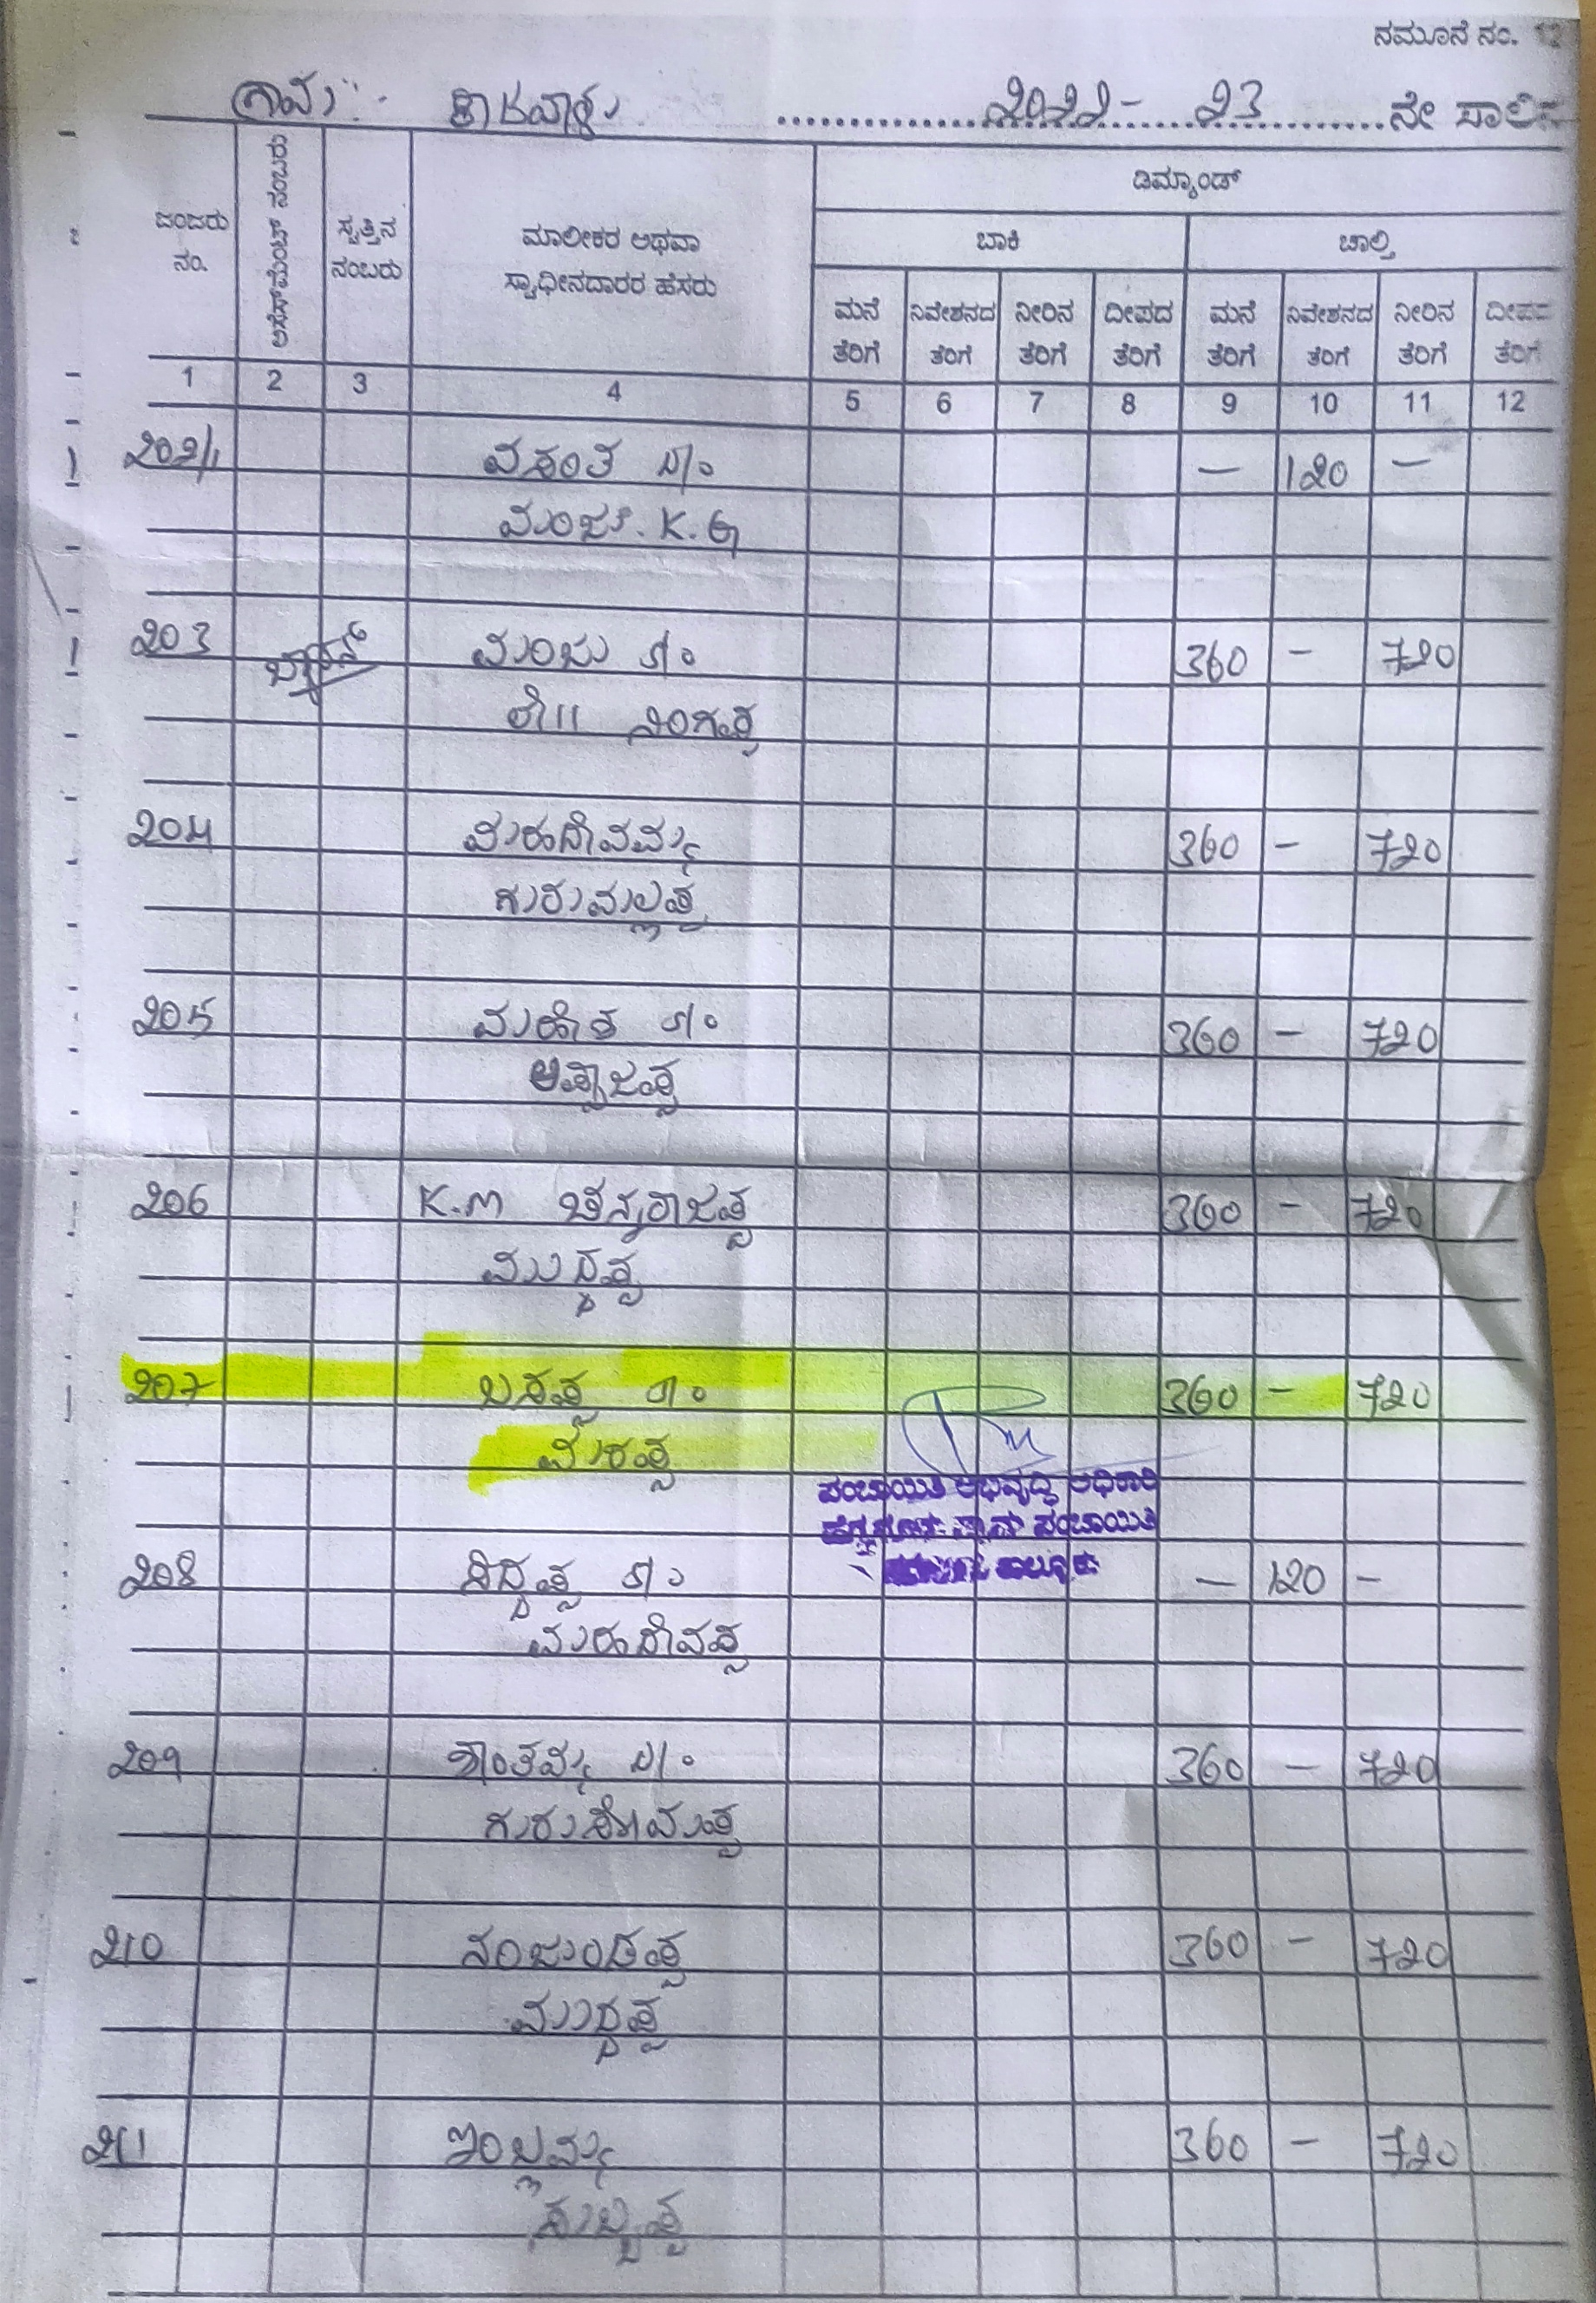 ನಮೂನೆ ನಂ. 12
ಗ್ರಾಮ: ಕಾರವಾಳು 2022- 23 ನೇ ಸಾಲಿನ
ಜಂಜರು ನಂ.
ಅಸೆಸ್‌ಮೆಂಟ್ ನಂಬರು
ಸ್ವತ್ತಿನ ನಂಬರು
ಮಾಲೀಕರ ಅಥವಾ
ಸ್ವಾಧೀನದಾರರ ಹೆಸರು
ಡಿಮ್ಯಾಂಡ್
ಬಾಕಿ ಚಾಲ್ತಿ
ಮನೆ ನಿವೇಶನದ ನೀರಿನ ದೀಪದ ಮನೆ ನಿವೇಶನದ ನೀರಿನ ದೀಪದ
ತೆರಿಗೆ ತೆರಿಗೆ ತೆರಿಗೆ ತೆರಿಗೆ ತೆರಿಗೆ ತೆರಿಗೆ ತೆರಿಗೆ ತೆರಿಗೆ
1 2 3 4 5 6 7 8 9 10 11 12
202/1 ವಸಂತ D/o — 120 —
ಮಂಜು. K. G
203 S/o ಮಂಜು 360 - 720
ಲೇ|| ನಿಂಗಪ್ಪ
204 ಮಹದೇವಮ್ಮ 360 - 720
ಗುರುಮಲ್ಲಪ್ಪ
205 ಮಹೇಶ S/o 360 - 720
ಅಪ್ಪಾಜಪ್ಪ
206 K.M ಚಿನ್ನರಾಜಪ್ಪ 360 - 720
ಮುದ್ದಪ್ಪ
207 ಬಸಪ್ಪ S/o 360 - 720
ಮರಪ್ಪ
ಪಂಚಾಯಿತಿ ಅಭಿವೃದ್ಧಿ ಅಧಿಕಾರಿ
ಗ್ರಾಮ ಪಂಚಾಯಿತಿ
ತಾಲ್ಲೂಕು
208 ಸಿದ್ದಪ್ಪ S/o — 120 —
ಮಹದೇವಪ್ಪ
209 ಶಾಂತಮ್ಮ D/o 360 - 720
ಗುರುಸೋಮಪ್ಪ
210 ನಂಜುಂಡಪ್ಪ 360 - 720
ಮುದ್ದಪ್ಪ
211 360 - 720
ಸುಬ್ಬಪ್ಪ